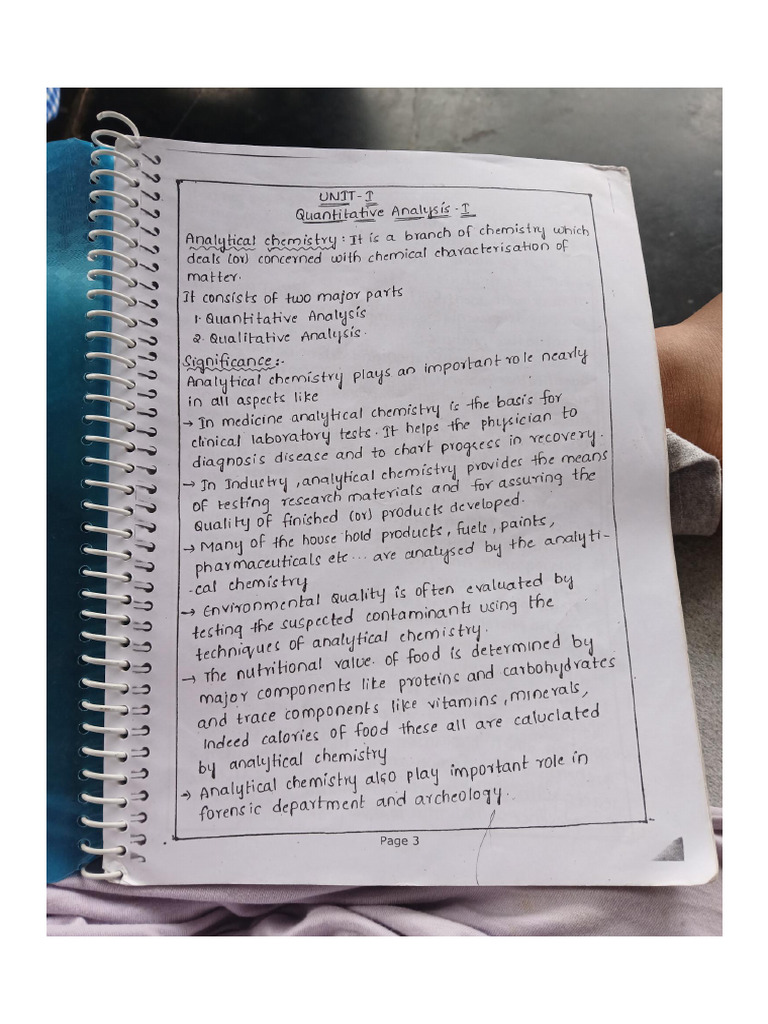 UNIT-I
Quantitative Analysis-I
Analytical chemistry: It is a branch of chemistry which
deals (or) concerned with chemical characterisation of
matter.
It consists of two major parts
1. Quantitative Analysis
2. Qualitative Analysis.
Significance:-
Analytical chemistry plays an important role nearly
in all aspects like
→ In medicine analytical chemistry is the basis for
clinical laboratory tests. It helps the physician to
diagnosis disease and to chart progress in recovery.
→ In Industry, analytical chemistry provides the means
of testing research materials and for assuring the
Quality of finished (or) products developed.
→ Many of the house hold products, fuels, paints,
pharmaceuticals etc... are analysed by the analyti-
-cal chemistry
→ Environmental Quality is often evaluated by
testing the suspected contaminants using the
techniques of analytical chemistry.
→ The nutritional value. of food is determined by
major components like proteins and carbohydrates
and trace components like vitamins, minerals,
Indeed calories of food these all are caluclated
by analytical chemistry
→ Analytical chemistry also play important role in
forensic department and archeology.
Page 3